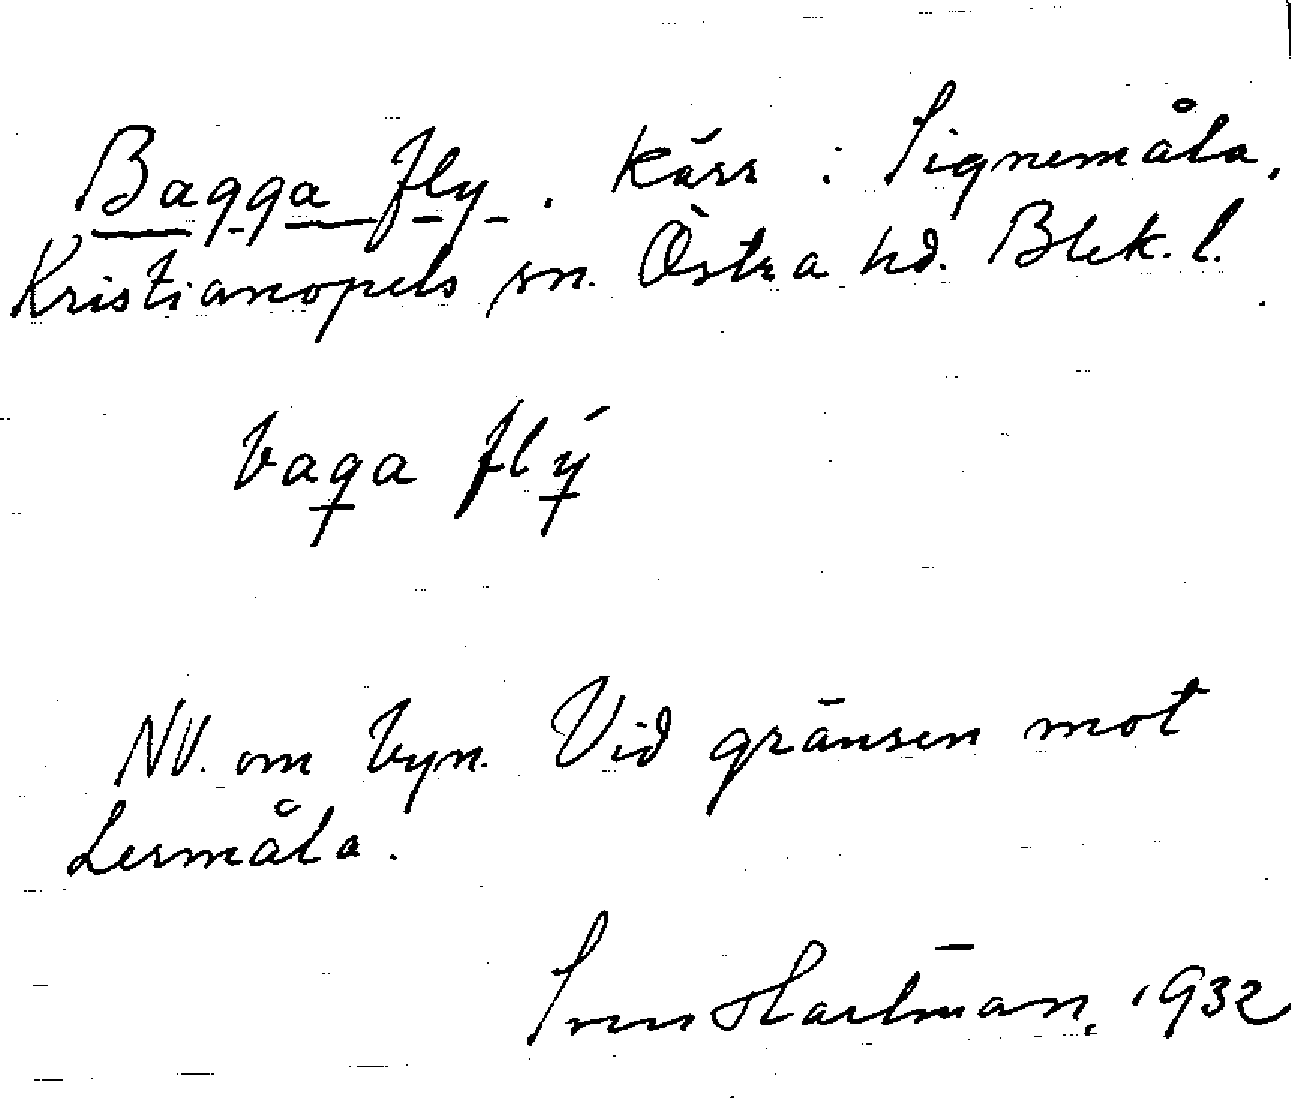 Bagga fly. Kärr i Signemåla,
Kristianopels sn. Östra hd. Blek. l.
baga flý
NV. om byn. Vid gränsen mot
Lermåla.
Sven Hartman, 1932